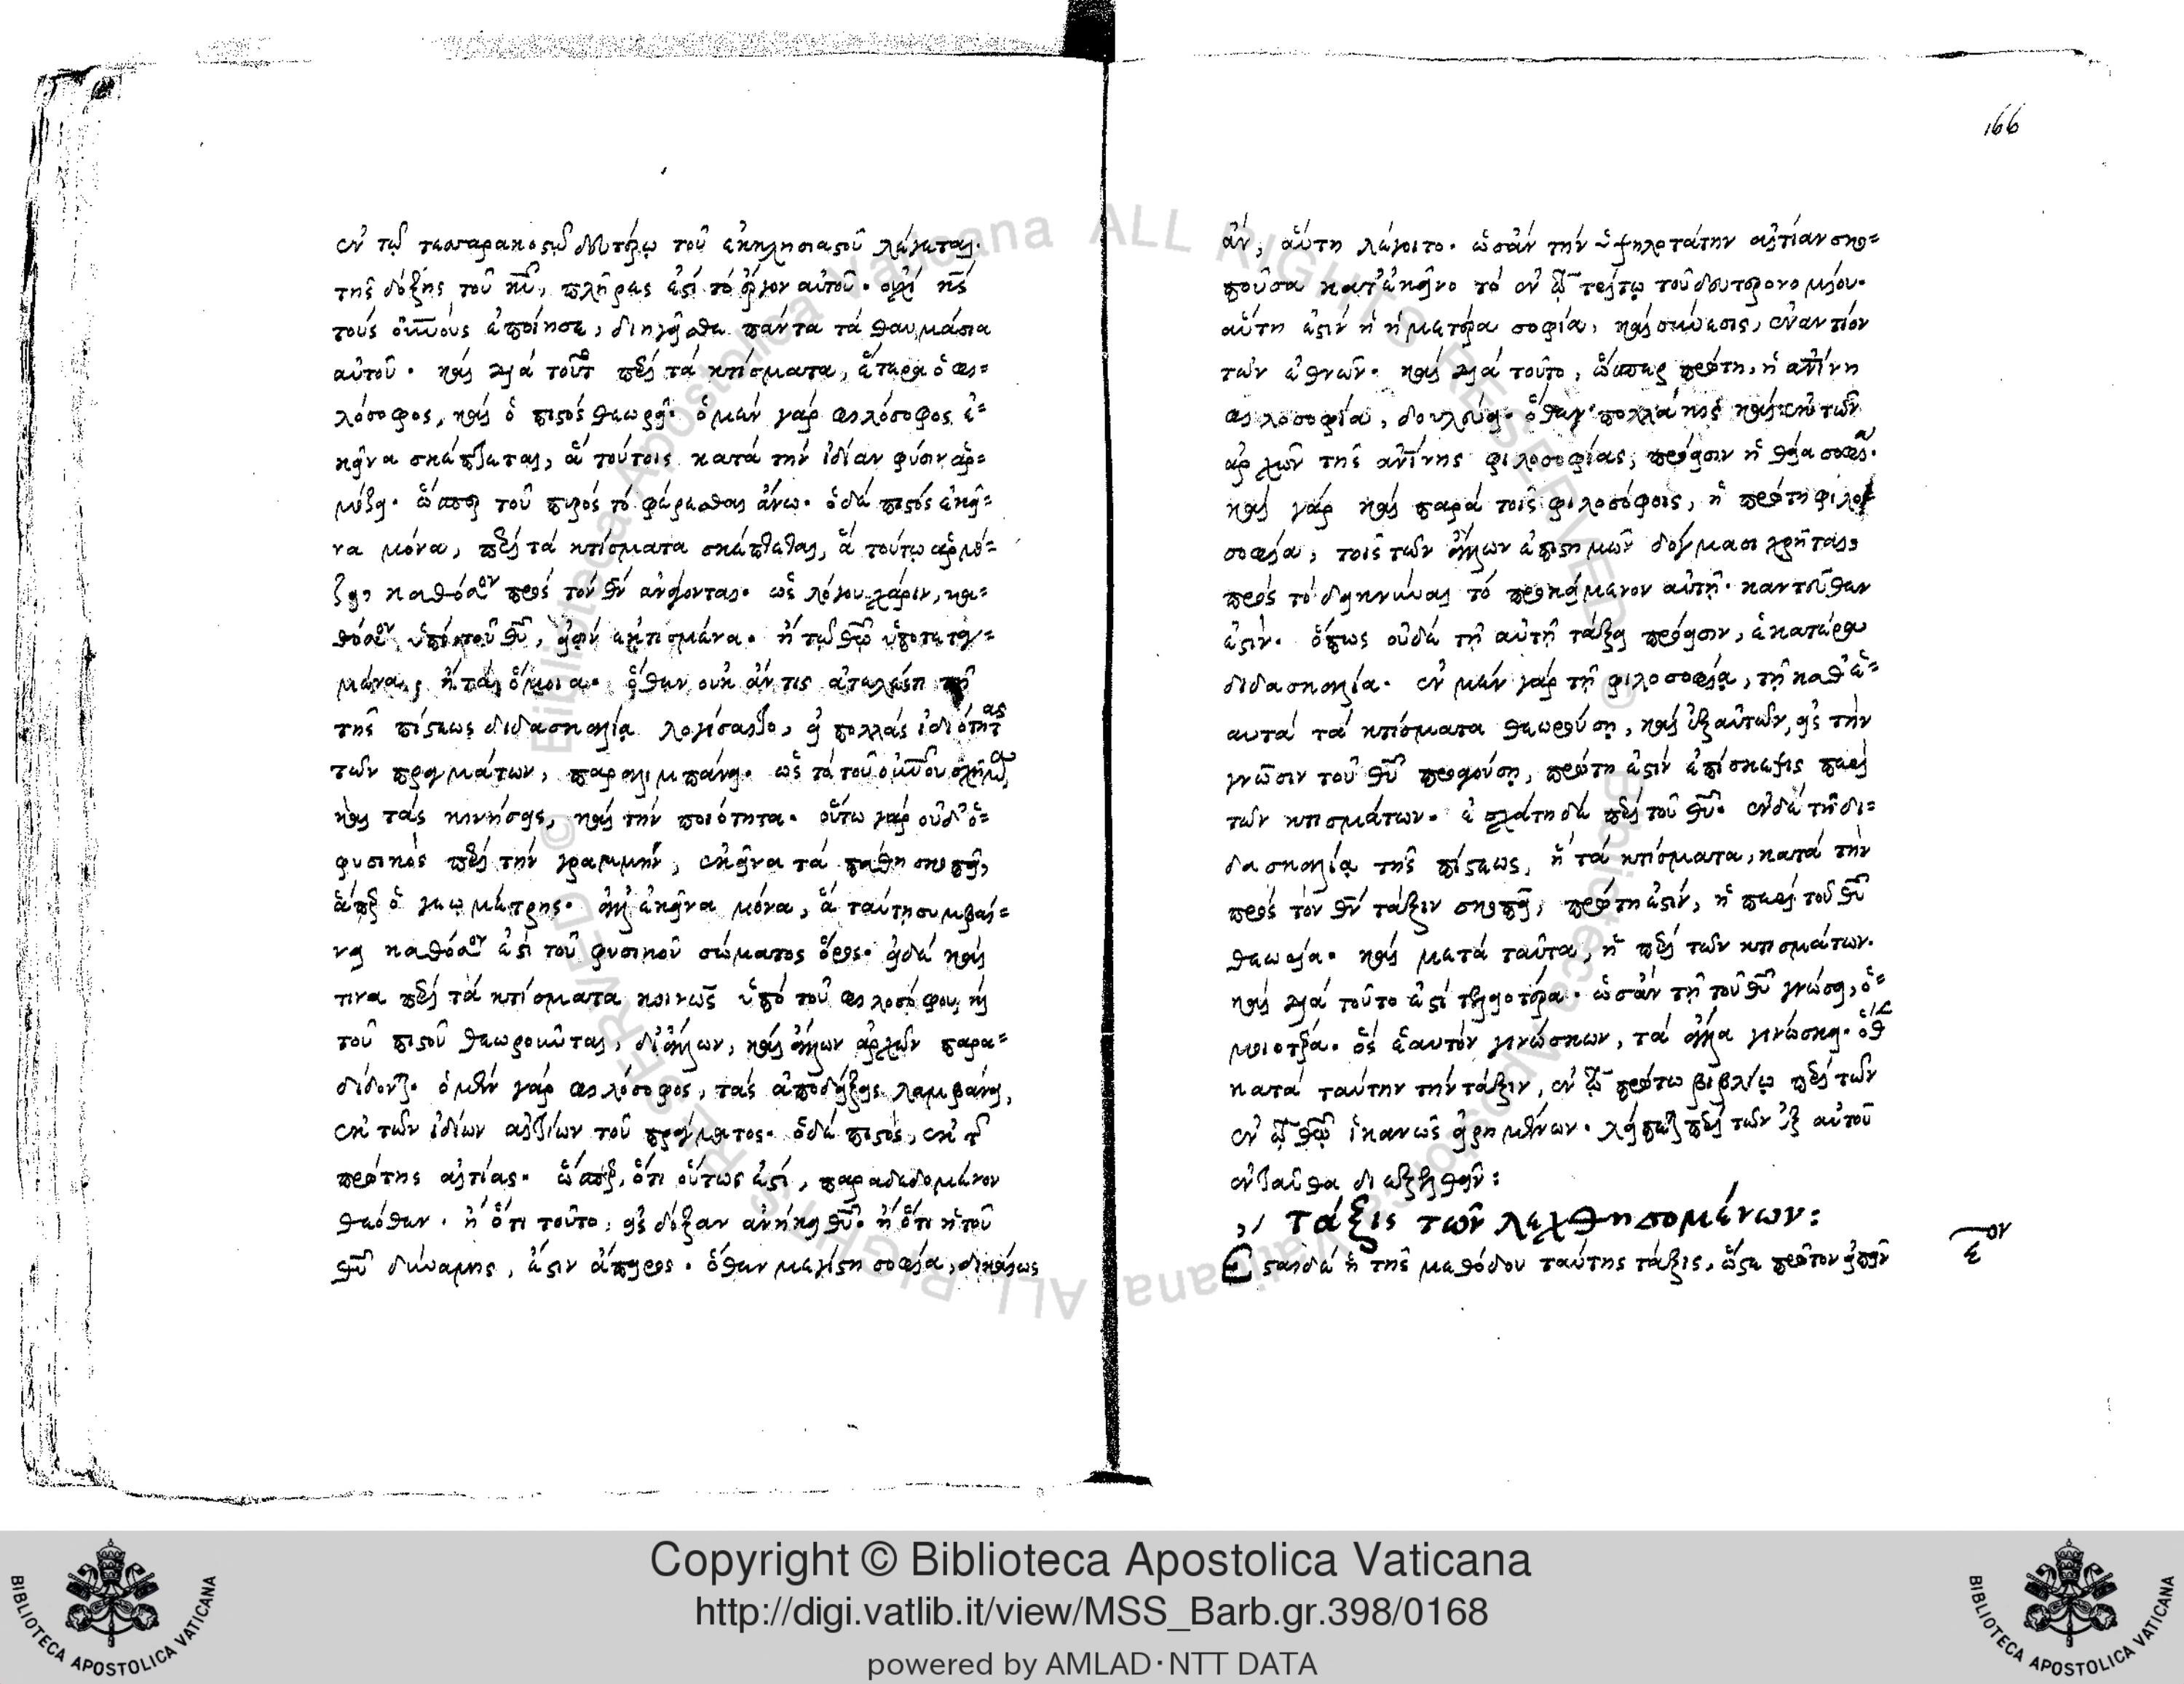 ἐν τῷ τεσσαρακοστῷ δευτέρῳ τοῦ ἐκκλησιαστοῦ λέγεται·
τῆς δόξης τοῦ κυ, πλῆρες ἐστὶ τὸ ἔργον αὐτοῦ· οὐχὶ κς
τοὺς ἐποίησε, διηγεῖσθαι πάντα τὰ θαυμάσια
αὐτοῦ· καὶ διὰ τοῦτο περὶ τὰ κτίσματα, ἕτερα ὁ φι=
λόσοφος, καὶ ὁ πιστὸς θεωρεῖ· ὁ μὲν γὰρ φιλόσοφος ἐ=
κεῖνα σκέπτεται, ἃ τούτοις κατὰ τὴν ἰδίαν φύσιν ἁρ=
μόζει· ὥσπερ τοῦ πυρὸς τὸ φέρεσθαι ἄνω· ὁ δὲ πιστὸς ἐκεῖ=
να μόνα, περὶ τὰ κτίσματα σκέπτεται, ἃ τούτῳ ἁρμό=
ζει, καθόσον πρὸς τὸν θν ἀναφέρονται· ὡς λόγου χάριν, κα=
θόσον ὑπὸ τοῦ θυ, εἰσὶν ἐκτισμένα· ἢ τῷ θω ὑποτεταγ=
μένα, ἢ τὰ ὅμοια· ὅθεν οὐκ ἄν τις ἀτελείᾳ
τῆς πίστεως διδασκαλίᾳ λογίσαιτο, εἰ πολλὰς ἰδιότητας
τῶν πραγμάτων, παραλιμπάνει· ὡς τὰ τοῦ σχήματα
καὶ τὰς κινήσεις, καὶ τὴν ποιότητα· οὕτω γὰρ οὐδ' ὁ=
φυσικὸς περὶ τὴν γραμμὴν, ἐκεῖνα τὰ πάθη σκοπεῖ,
ἅπερ ὁ γεωμέτρης· ἀλλ' ἐκεῖνα μόνα, ἃ ταύτῃ συμβαί=
νει καθόσον ἐστὶ τοῦ φυσικοῦ σώματος ὅρος· εἰ δὲ καί
τινα περὶ τὰ κτίσματα κοινῶς ὑπὸ τοῦ φιλοσόφου καὶ
τοῦ πιστοῦ θεωροῦνται, δι' ἄλλων, καὶ ἄλλων ἀρχῶν παρα=
δίδονται· ὁ μὲν γὰρ φιλόσοφος, τὰς ἀποδείξεις λαμβάνει,
ἐκ τῶν ἰδίων αἰτίων τοῦ πράγματος· ὁ δὲ πιστός, ἐκ τῆς
πρώτης αἰτίας· ὥσπερ, ὅτι οὕτως ἐστί, παραδεδομένον
θεόθεν· ἢ ὅτι τοῦτο, εἰς δόξαν ἀνήκει θυ· ἢ ὅτι ἡ τοῦ
θυ δύναμις, ἐστὶν ἄπειρος· ὅθεν μεγίστη σοφία, δικαίως
166
ἂν, αὕτη λέγοιτο· ὡσὰν τὴν ὑψηλοτάτην αἰτίαν σκο=
ποῦσα κατ' ἐκεῖνο τὸ ἐν τῷ τετάρτῳ τοῦ δευτερονομίου·
αὕτη ἐστὶν ἡ ἡμετέρα σοφία, καὶ σύνεσις, ἐναντίον
τῶν ἐθνῶν· καὶ διὰ τοῦτο, ὥσπερ πρώτῃ, ἡ ἀνίνη
φιλοσοφία, δουλεύει· ὅθεν πολλάκις καὶ ἐκ τῶν
ἀρχῶν τῆς ἀνίνης φιλοσοφίας, πρόεισιν ἡ θεία σοφία·
καὶ γὰρ καὶ παρὰ τοῖς φιλοσόφοις, ἡ πρώτη φιλο
σοφία, τοῖς τῶν ἄλλων ἐπιστημῶν δόγμασι χρῆται,
πρὸς τὸ δεικνύναι τὸ προκείμενον αὐτῇ· κἀντεῦθεν
ἐστὶν· ὅπως οὐδὲ τῇ αὐτῇ τάξει πρόεισιν, ἑκατέρα
διδασκαλία· ἐν μὲν γὰρ τῇ φιλοσοφίᾳ, τῇ καθ' ἑ=
αυτὰ τὰ κτίσματα θεωρούσῃ, καὶ ἐξ αὐτῶν, εἰς τὴν
γνῶσιν τοῦ θυ προαγούσῃ, πρώτη ἐστὶν ἐπίσκεψις περὶ
τῶν κτισμάτων· ἐσχάτη δὲ περὶ τοῦ θυ· ἐν δὲ τῇ δι=
δασκαλίᾳ τῆς πίστεως, ἣ τὰ κτίσματα, κατὰ τὴν
πρὸς τὸν θν τάξιν σκοπεῖ, πρώτη ἐστὶν, ἡ περὶ τοῦ θυ
θεωρία· καὶ μετὰ ταῦτα, ἡ περὶ τῶν κτισμάτων·
καὶ διὰ τοῦτο ἐστὶ τελειοτέρα· ὡσὰν τῇ τοῦ θυ γνώσει, ὁ=
μοιοτέρα· ὃς ἑαυτὸν γινώσκων, τὰ ἄλλα γινώσκει· ὅθεν
κατὰ ταύτην τὴν τάξιν, ἐν τῷ πρώτῳ βιβλίῳ περὶ τῶν
ἐν τῷ θω ἱκανῶς εἰρημένων· λείπεται περὶ τῶν ἐξ αὐτοῦ
ἐνταῦθα διεξελθεῖν:
τάξις τῶν λεχθησομένων:
Ἔσται δὲ ἡ τῆς μεθόδου ταύτης τάξις, ὥστε πρῶτον εἰπεῖν
Copyright © Biblioteca Apostolica Vaticana
http://digi.vatlib.it/view/MSS_Barb.gr.398/0168
powered by AMLAD·NTT DATA
BIBLIOTECA APOSTOLICA VATICANA
BIBLIOTECA APOSTOLICA VATICANA